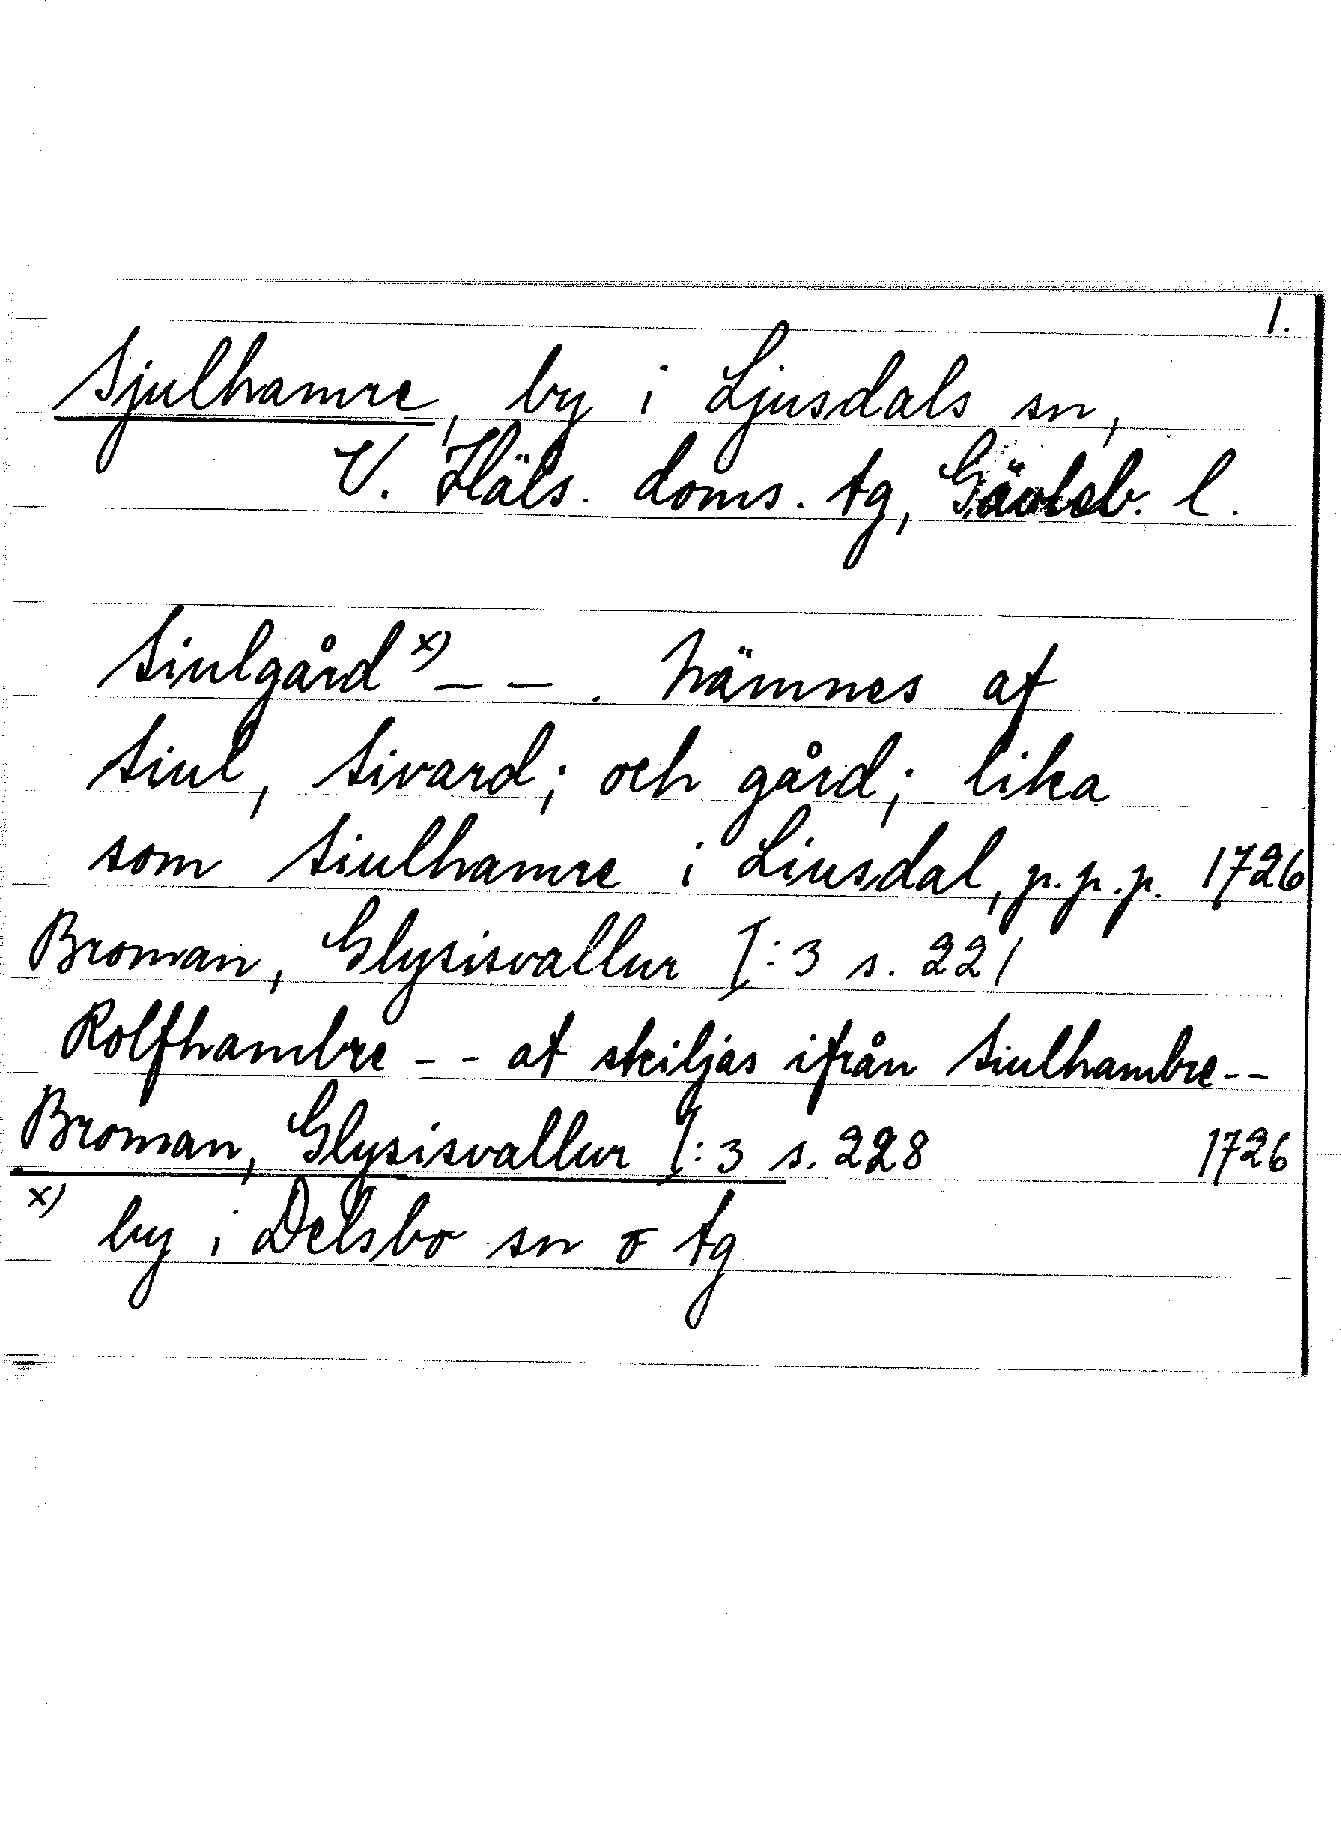 1.
Sjulhamre, by i Ljusdals sn,
V. Häls. doms. tg, Gävleb. l.
Siulgård x) – – . Nämnes af
Siul, Sivard; och gård; lika
som Siulhamre i Liusdal, p.p.p. 1726
Broman, Glysisvallur I:3 s. 221
Rolfhambre - - at skiljas ifrån Siulhambre--
Broman, Glysisvallur I:3 s. 228 1726
x) by i Delsbo sn o tg